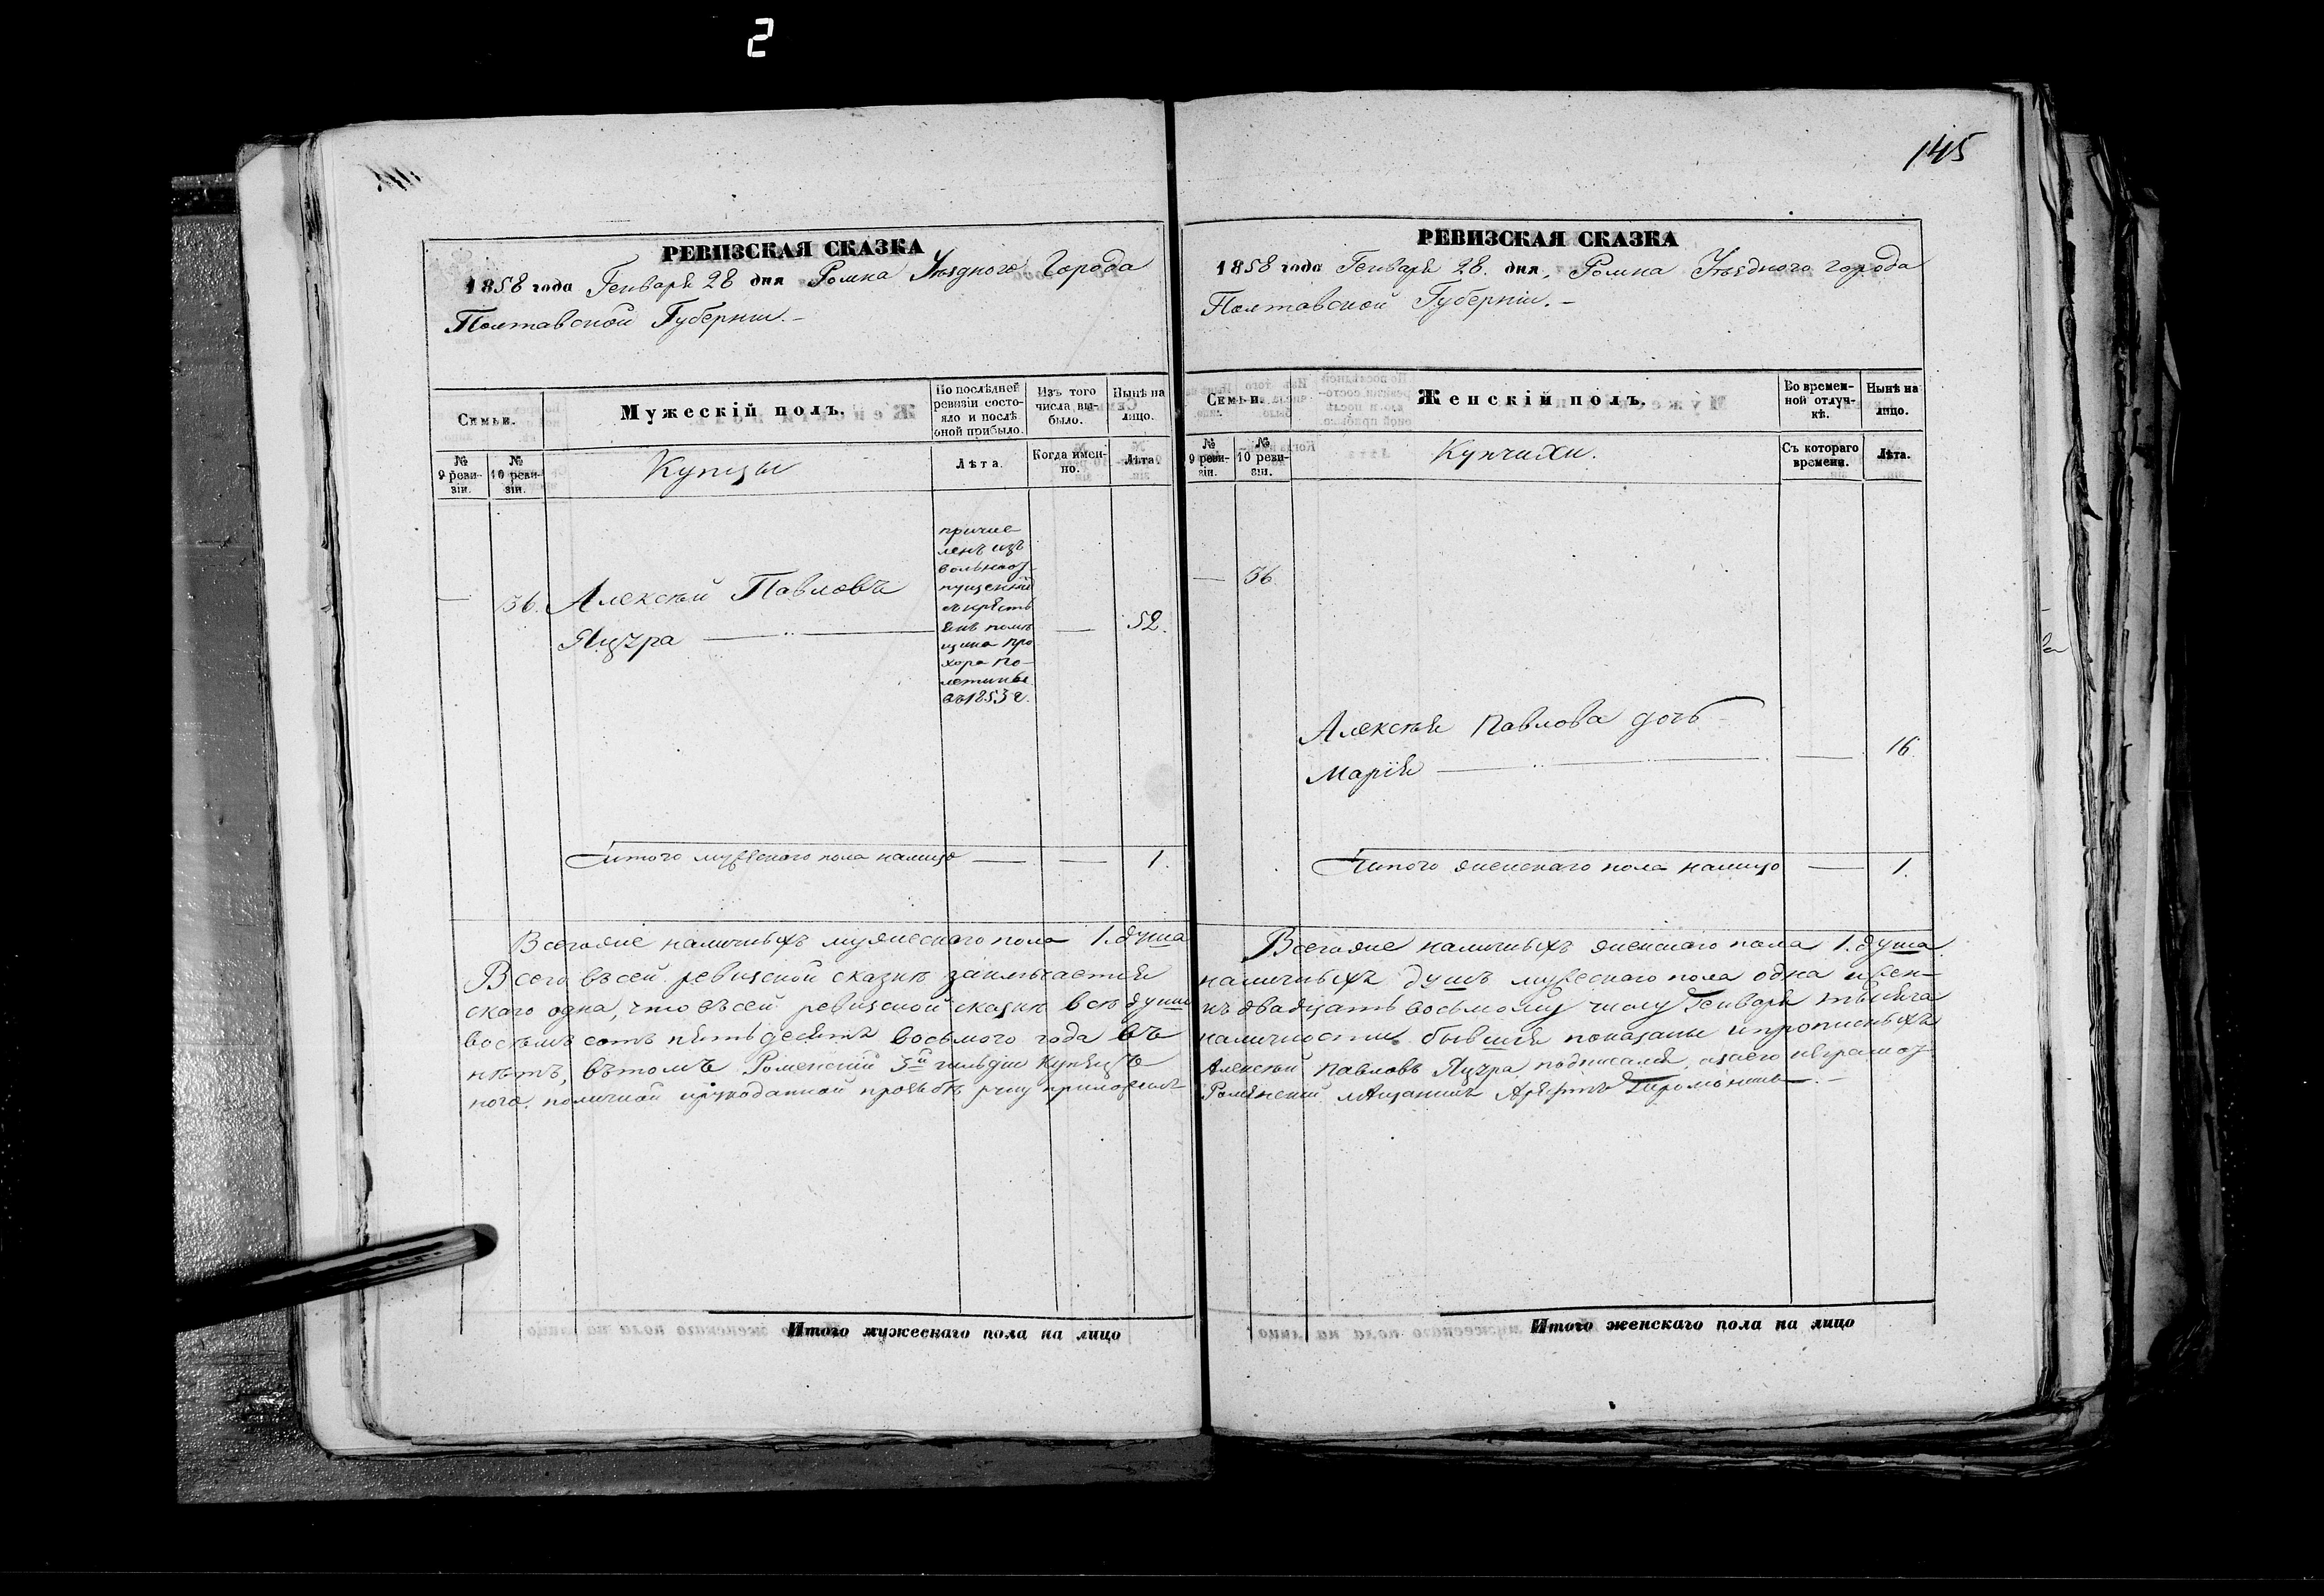 2
145
РЕВИЗСКАЯ СКАЗКА
1858 года Генваря 28 дня Ромна Уѣзднаго Города
Полтавской Губерніи.
Семьи.
Мужескій полъ.
По послѣдней ревизіи состояло и послѣ оной прибыло.
Изъ того числа выбыло.
Нынѣ на лицо.
№ 9 ревизіи.
№ 10 ревизіи.
Купцы
Лѣта.
Когда именно.
Лѣта.
причис-
ленъ изъ
вольноот-
пущенныхъ
крестъ
янъ помѣ
щика Про
хора По-
въ 1853 г.
— 36. Алексѣй Павловъ
Яцура — — 52.
Итого мужескаго пола налицо — — 1.
Всего же наличныхъ мужескаго пола 1. душа
Всего въ сей ревизской сказкѣ заключается
скаго одна, что въ сей ревизской сказкѣ всѣ души
восемь сотъ пятьдесятъ восьмого года въ
нѣтъ, въ томъ Роменскій 3й гильдіи купецъ
ного. по личной и рукоданной прозьбѣ руку приложилъ
Итого мужескаго пола на лицо
РЕВИЗСКАЯ СКАЗКА
1858 года Генваря 28. дня, Ромна Уѣзднаго города
Полтавской Губерніи.
Семьи.
Женскій полъ.
Во временной отлучкѣ.
Нынѣ на лицо.
№ 9 ревизіи.
№ 10 ревизіи.
Купчихи.
Съ котораго времени.
Лѣта.
— 36
Алексѣя Павлова дочь
Марія — — 16
Итого женскаго пола налицо — 1.
Всего же наличныхъ женскаго пола 1. душа.
наличныхъ душъ мужескаго пола одна и жен-
къ двадцать восьмому числу Генваря тысяча
наличности бывшія показаны и прописныхъ
Алексѣй Павловъ Яцура подписался, а за его неграмот
Роменскій мѣщанинъ
Итого женскаго пола на лицо